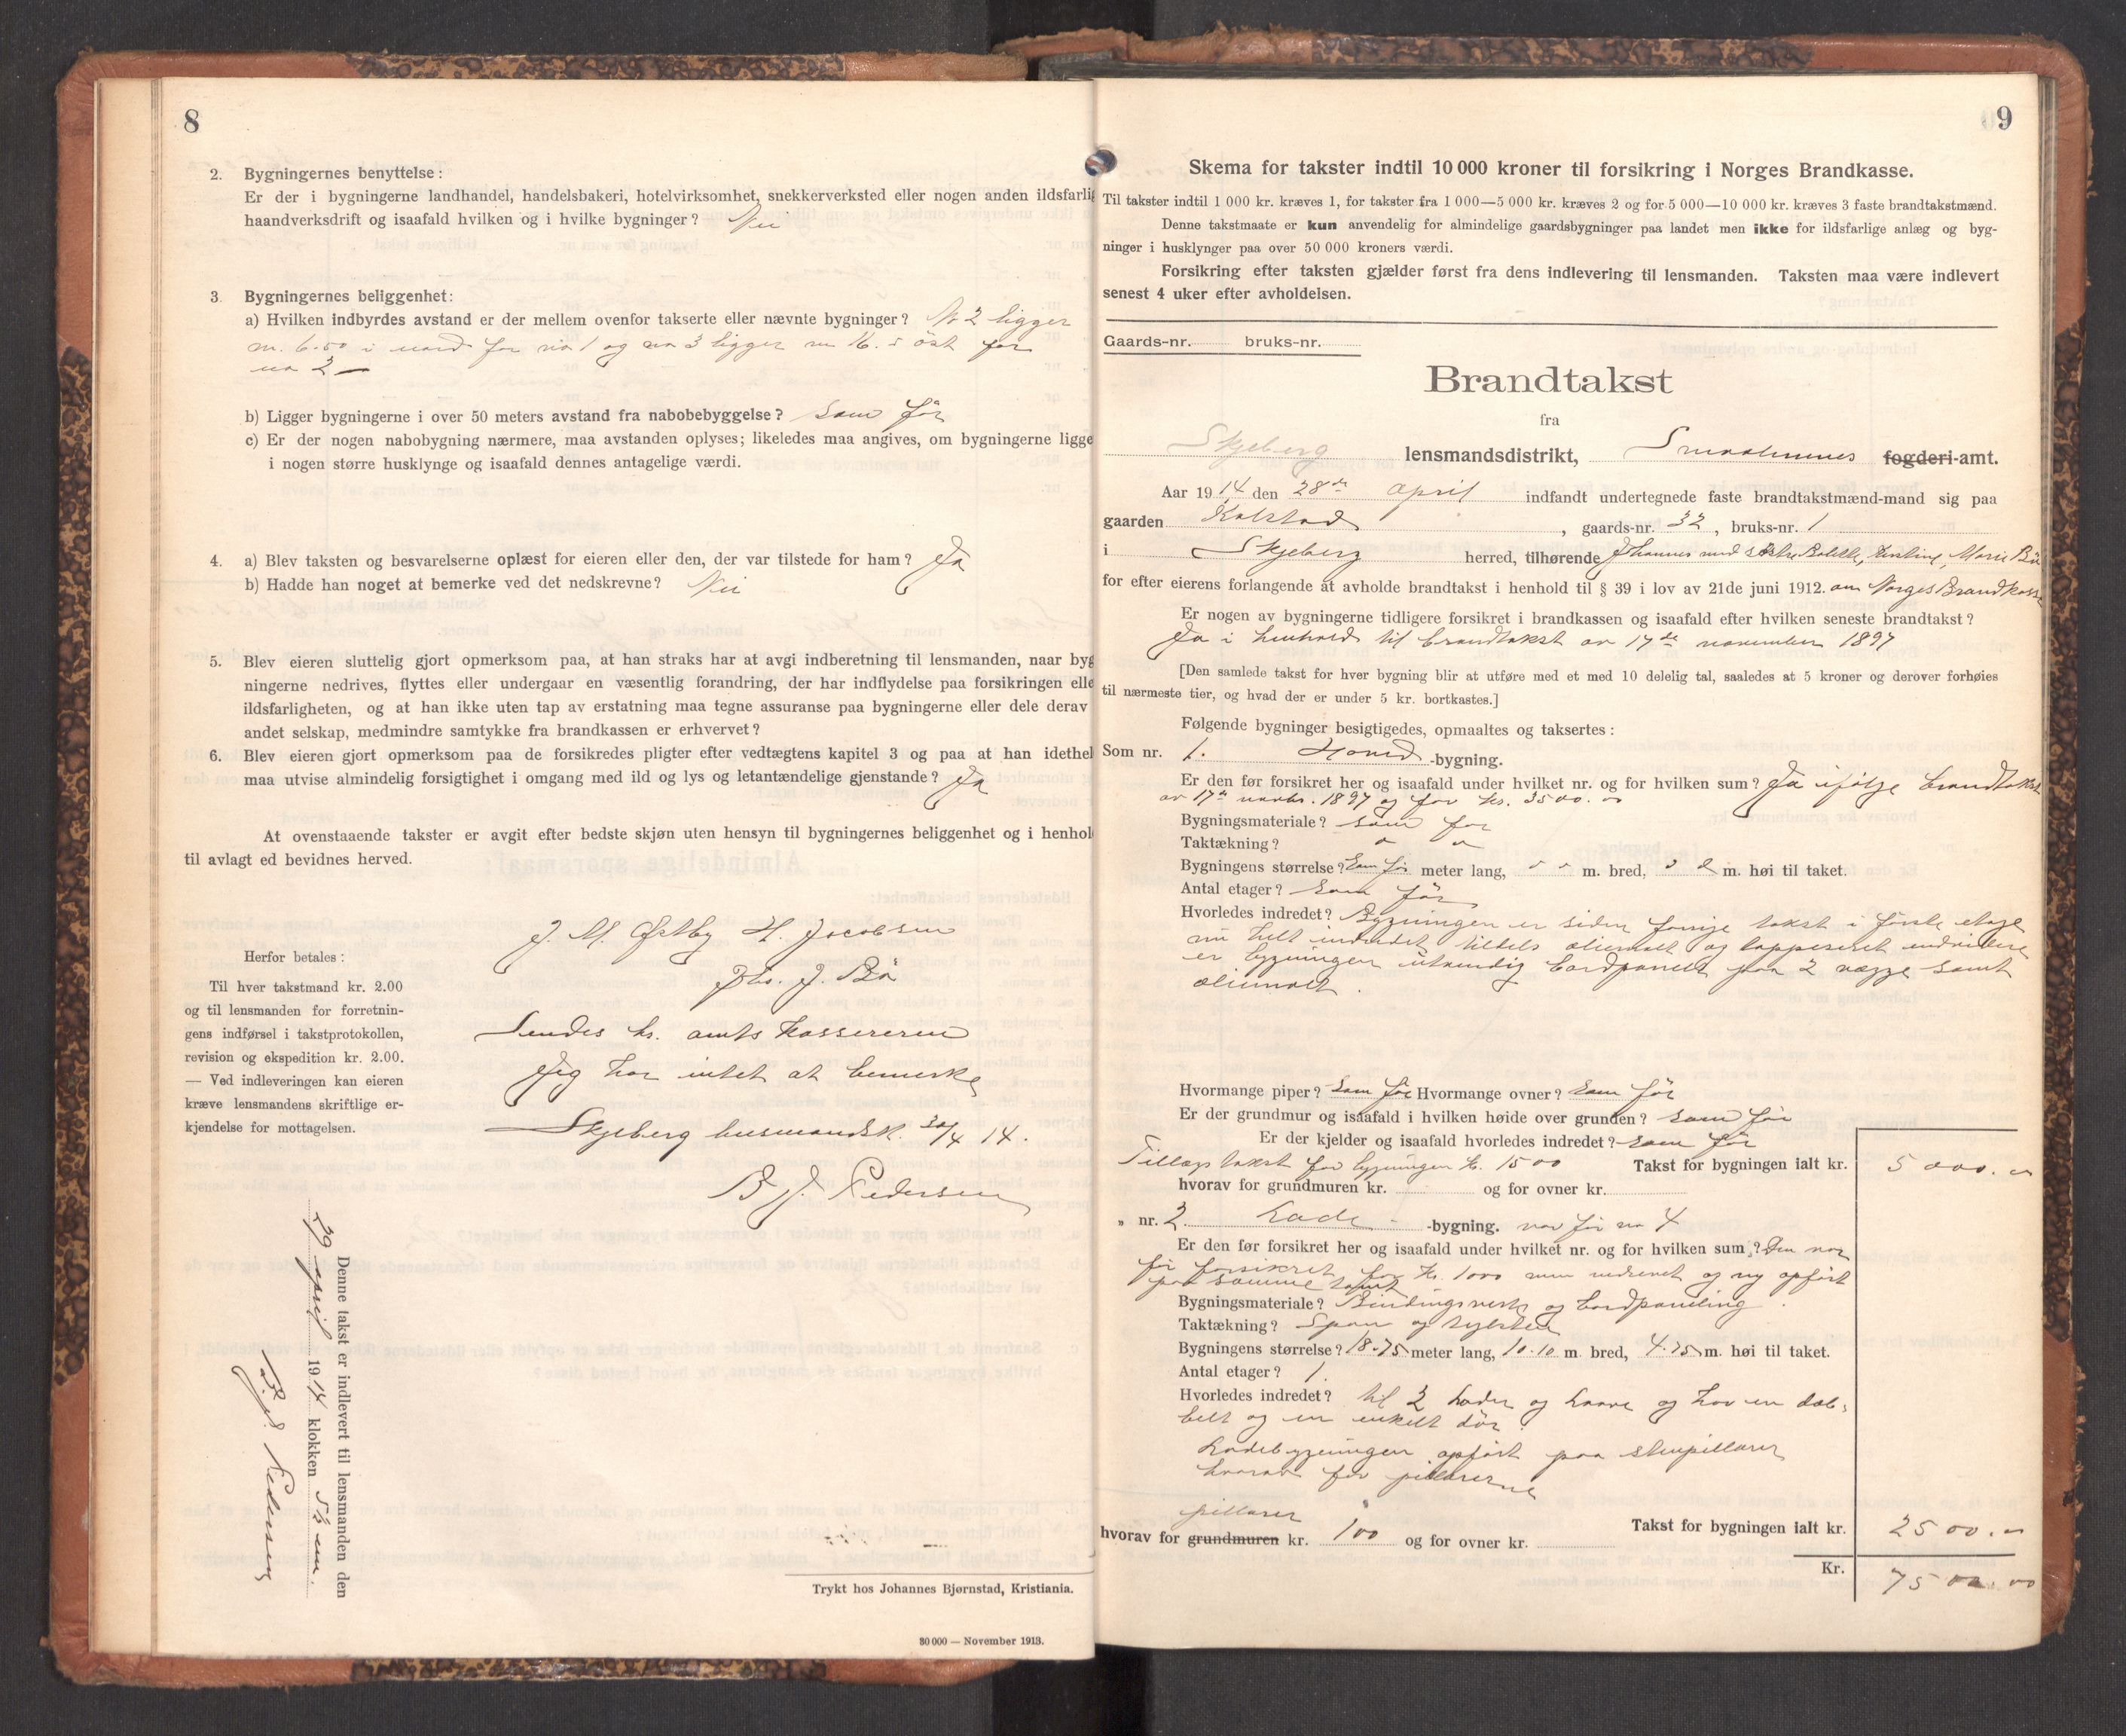 8
2. Bygningernes benyttelse:
Er der i bygningerne landhandel, handelsbakeri, hotelvirksomhet, snekkerverksted eller nogen anden ildsfarlig
haandverksdrift og isaafald hvilken og i hvilke bygninger? Nei
3. Bygningernes beliggenhet:
a) Hvilken indbyrdes avstand er der mellem ovenfor takserte eller nævnte bygninger? Nr 2 ligger
m. 6.50 i nord for nr 1 og nr 3 ligger m 16.5 öst for
nr 2
b) Ligger bygningerne i over 50 meters avstand fra nabobebyggelse? Som för
c) Er der nogen nabobygning nærmere, maa avstanden oplyses; likeledes maa angives, om bygningerne ligge
i nogen større husklynge og isaafald dennes antagelige værdi.
4. a) Blev taksten og besvarelserne oplæst for eieren eller den, der var tilstede for ham? Ja
b) Hadde han noget at bemerke ved det nedskrevne? Nei
5. Blev eieren sluttelig gjort opmerksom paa, at han straks har at avgi indberetning til lensmanden, naar byg
ningerne nedrives, flyttes eller undergaar en væsentlig forandring, der har indflydelse paa forsikringen elle
ildsfarligheten, og at han ikke uten tap av erstatning maa tegne assuranse paa bygningerne eller dele derav
andet selskap, medmindre samtykke fra brandkassen er erhvervet?
6. Blev eieren gjort opmerksom paa de forsikredes pligter efter vedtægtens kapitel 3 og paa at han idethel
maa utvise almindelig forsigtighet i omgang med ild og lys og letantændelige gjenstande? Ja
At ovenstaaende takster er avgit efter bedste skjøn uten hensyn til bygningernes beliggenhet og i henhol
til avlagt ed bevidnes herved.
J. M. Østby H. Jacobsen
Joh. J. Bö
Herfor betales:
Til hver takstmand kr. 2.00
og til lensmanden for forretnin-
gens indførsel i takstprotokollen,
revision og ekspedition kr. 2.00.
— Ved indleveringen kan eieren
kræve lensmandens skriftlige er-
kjendelse for mottagelsen.
Sendes hr. amtskassereren
Jeg har intet at bemerke
Skjeberg 30/4 14.
B J. Pedersen
Denne takst er indlevert til lensmanden den
29 april 1914 klokken 5½ em.
B. J. Pedersen
Trykt hos Johannes Bjørnstad, Kristiania.
30 000 — November 1913.
9
Skema for takster indtil 10 000 kroner til forsikring i Norges Brandkasse.
Til takster indtil 1 000 kr. kræves 1, for takster fra 1 000—5 000 kr. kræves 2 og for 5 000—10 000 kr. kræves 3 faste brandtakstmænd.
Denne takstmaate er kun anvendelig for almindelige gaardsbygninger paa landet men ikke for ildsfarlige anlæg og byg-
ninger i husklynger paa over 50 000 kroners værdi.
Forsikring efter taksten gjælder først fra dens indlevering til lensmanden. Taksten maa være indlevert
senest 4 uker efter avholdelsen.
Gaards-nr. bruks-nr.
Brandtakst
fra
Skjeberg lensmandsdistrikt, Smaalenenes fogderi-amt.
Aar 1914 den 28de april indfandt undertegnede faste brandtakstmænd-mand sig paa
gaarden Kolstad, gaards-nr. 32, bruks-nr. 1
i Skjeberg herred, tilhørende Johannes med söstre Bolette, Kristine, Marie Bö
for efter eierens forlangende at avholde brandtakst i henhold til § 39 i lov av 21de juni 1912. om Norges Brandkasse
Er nogen av bygningerne tidligere forsikret i brandkassen og isaafald efter hvilken seneste brandtakst?
Ja i henhold til brandtakst av 17de november 1897
[Den samlede takst for hver bygning blir at utføre med et med 10 delelig tal, saaledes at 5 kroner og derover forhøies
til nærmeste tier, og hvad der er under 5 kr. bortkastes.]
Følgende bygninger besigtigedes, opmaaltes og taksertes:
Som nr. 1. Hoved-bygning.
Er den før forsikret her og isaafald under hvilket nr. og for hvilken sum? Ja ifølge brandtakst
av 17de novbr. 1897 og for kr. 3500.00
Bygningsmateriale? som för
Taktækning? " "
Bygningens størrelse? Som för meter lang, " " m. bred, " " m. høi til taket.
Antal etager? Som för
Hvorledes indredet? Bygningen er siden forrige takst i förste etage
nu helt indredet tildels oliemalt og tapetseret endvidere
er bygningen utvendig bordpanelt paa 2 vægge samt
oliemalt.
Hvormange piper? Som för Hvormange ovner? Som för
Er der grundmur og isaafald i hvilken høide over grunden? som för
Er der kjelder og isaafald hvorledes indredet? som för
Tillægstakst for bygningen kr. 1500 Takst for bygningen ialt kr. 5000.00
hvorav for grundmuren kr. og for ovner kr.
„ nr. 2. Lade-bygning. var för nr 4
Er den før forsikret her og isaafald under hvilket nr. og for hvilken sum? Den var
för forsikret for kr. 1000 men nedrevet og ny opfört
paa samme tomt
Bygningsmateriale? Bindingsverk og bordpaneling.
Taktækning? Spon og
Bygningens størrelse? 18.75 meter lang, 10.10 m. bred, 4.75 m. høi til taket.
Antal etager? 1.
Hvorledes indredet? til 2 lader og laave og har en dob-
belt og en enkelt dör.
Ladebygningen opfört paa stenpillarer
hvorav for pillarerne
pillarer
hvorav for grundmuren kr. 100 og for ovner kr. Takst for bygningen ialt kr. 2500.00
Kr. 7500.00